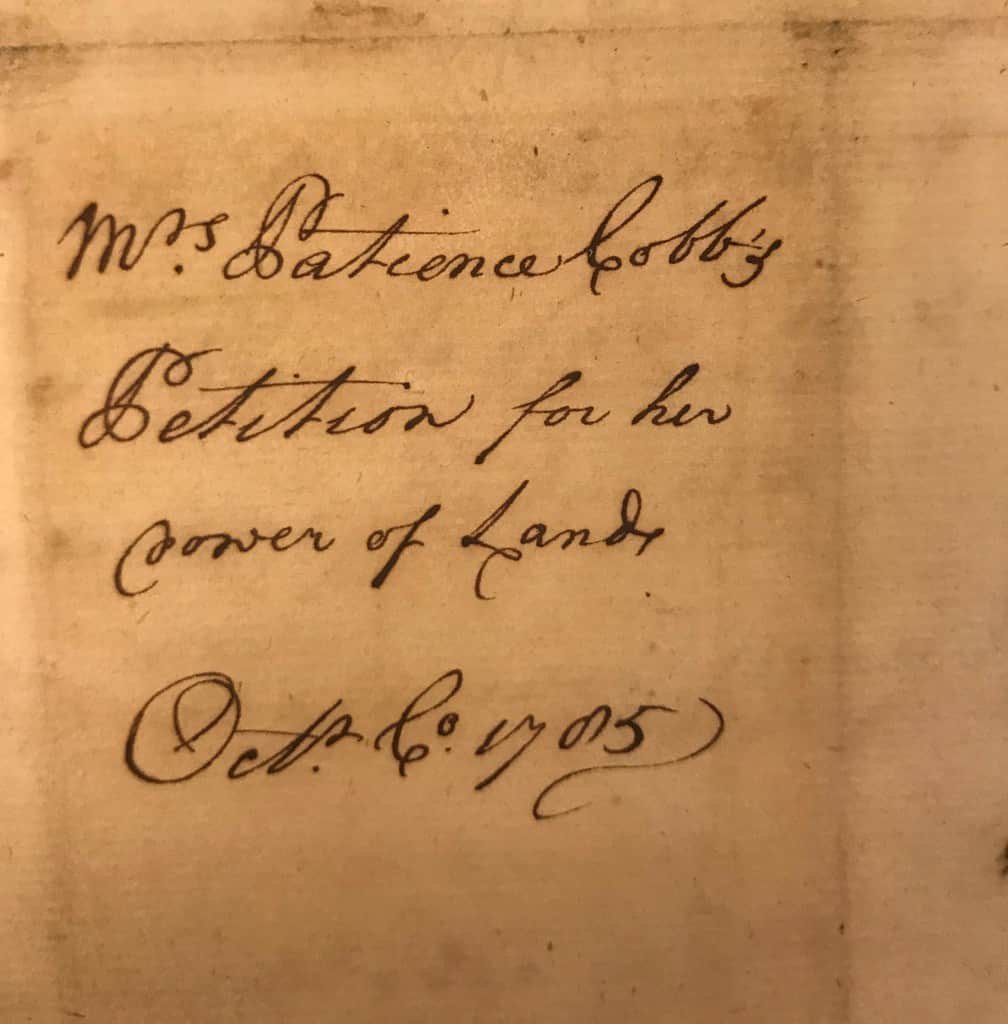 Mrs. Patience Cobb's
Petition for her
Dower of Lands
Octr. Co. 1785